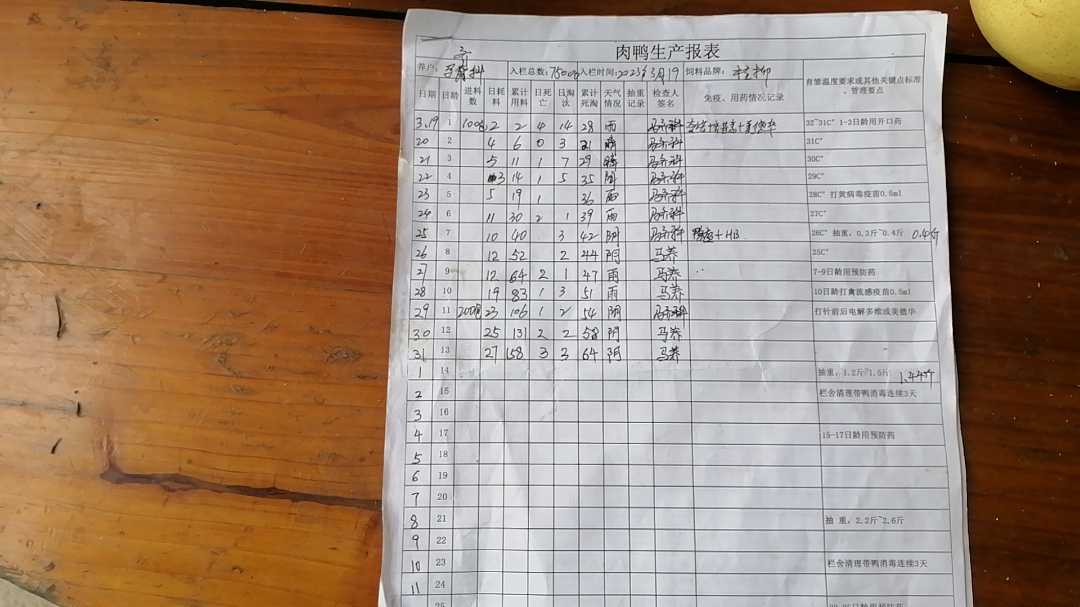 肉鸭生产报表
养户: 入栏总数:7500 入栏时间:2023年3月19 饲料品牌: 桂柳 育雏温度要求或其他关键点标准、管理要点
日期 日龄 进料数 日耗料 累计用料 日死亡 日淘汰 累计死淘 天气情况 抽重记录 检查人签名 免疫、用药情况记录
3.19 1 100包 2 2 4 14 28 雨 32~31C° 1-3日龄用开口药
20 2 4 6 0 3 31 晴 31C°
21 3 5 11 1 7 29 30C°
22 4 3 14 1 5 35 阴 29C°
23 5 5 19 1 36 雨 28C° 打黄病毒疫苗0.5ml
24 6 11 30 2 1 39 雨 27C°
25 7 10 40 3 42 阴 +HB 26C° 抽重，0.3斤~0.4斤 0.4斤
26 8 12 52 2 44 阴 马养 25C°
27 9 12 64 2 1 47 雨 马养 7-9日龄用预防药
28 10 19 83 1 3 51 雨 马养 10日龄打禽流感疫苗0.5ml
29 11 200包 23 106 1 2 54 阴 打针前后电解多维或美德华
30 12 25 131 2 2 58 阴 马养
31 13 27 158 3 3 64 阴 马养
1 14 抽重，1.2斤~1.5斤 1.44斤
2 15 栏舍清理带鸭消毒连续3天
3 16
4 17 15-17日龄用预防药
5 18
6 19
7 20
8 21 抽 重，2.2斤~2.6斤
9 22
10 23 栏舍清理带鸭消毒连续3天
11 24
25